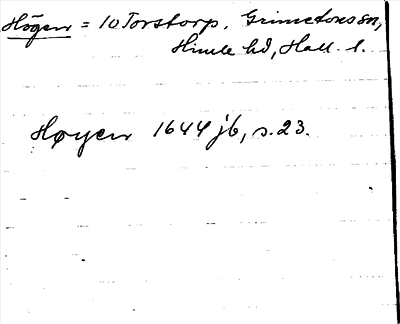 Högen = 10 Torstorp, Grimetons sn,
Himle hd, Hall. l.
Høyen 1644 jb, s. 23.